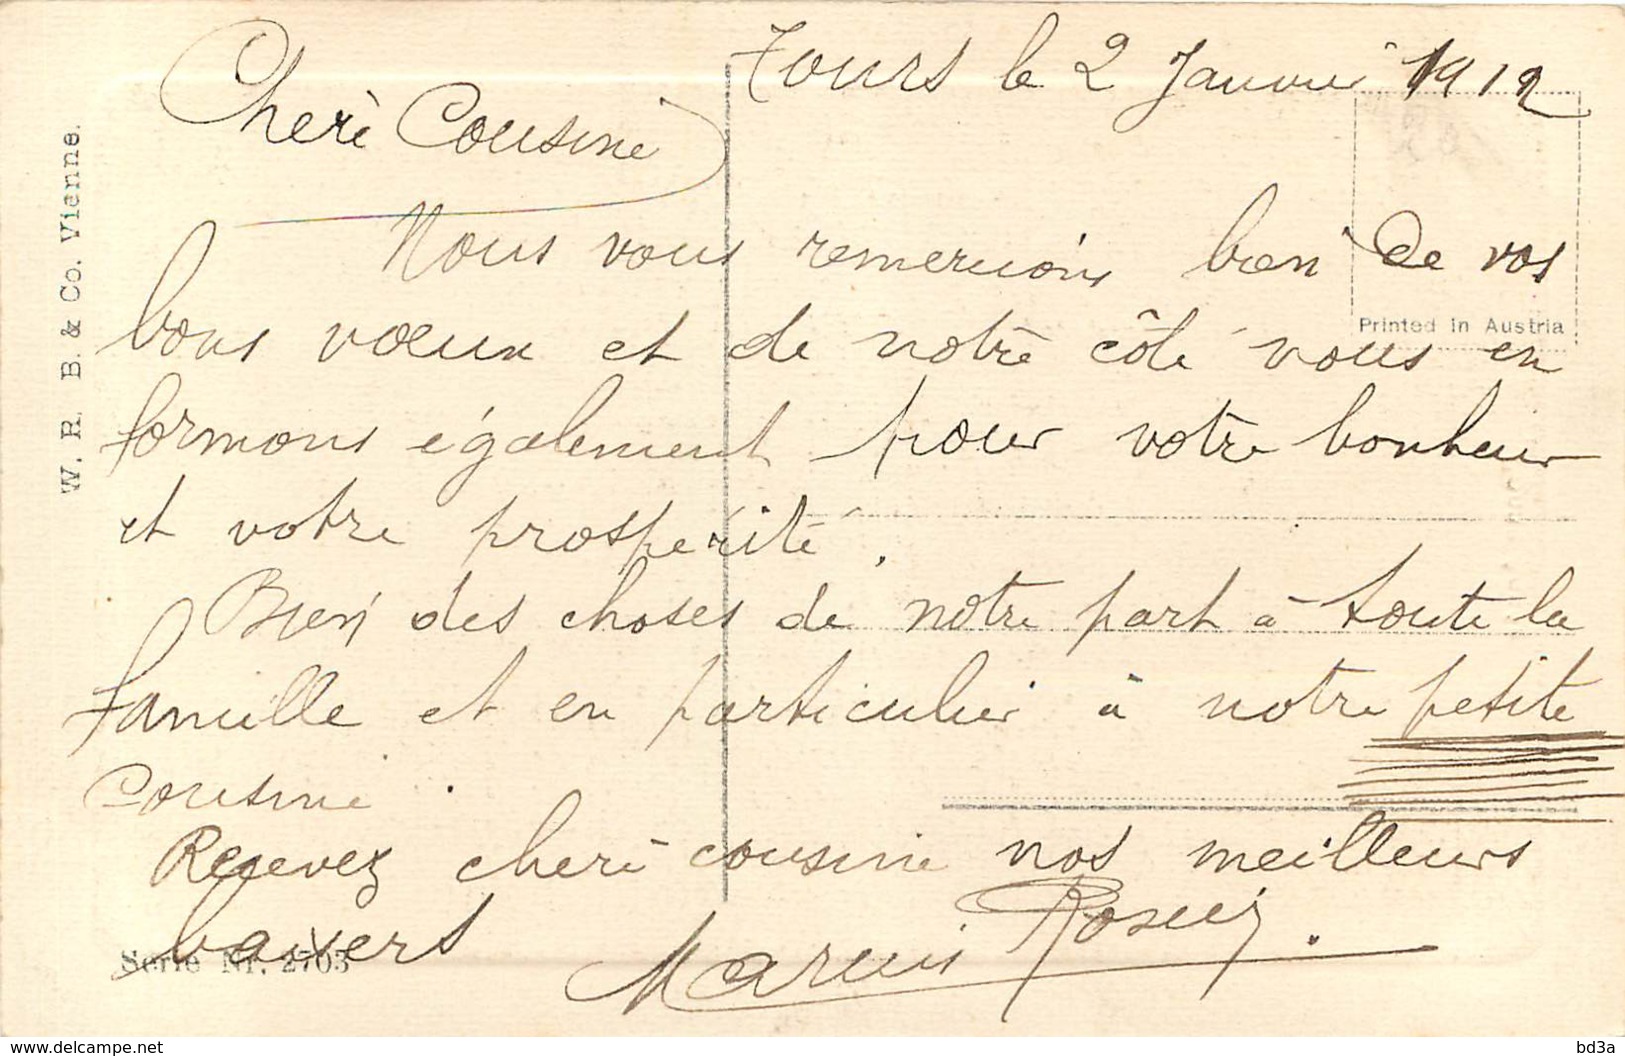 Tours le 2 Janvier 1912
Cherè Cousine
Nous vous remercions bien de vos
bons vœux et de notre côté vous en
formons également pour votre bonheur
et votre prospérité.
Bien des choses de notre part à toute la
famille et en particulier à notre petite
cousine.
Recevez chere cousine nos meilleurs
baisers
W. R. B. & Co. Vienne.
Printed in Austria
Serie Nr. 2703
www.delcampe.net
bd3a